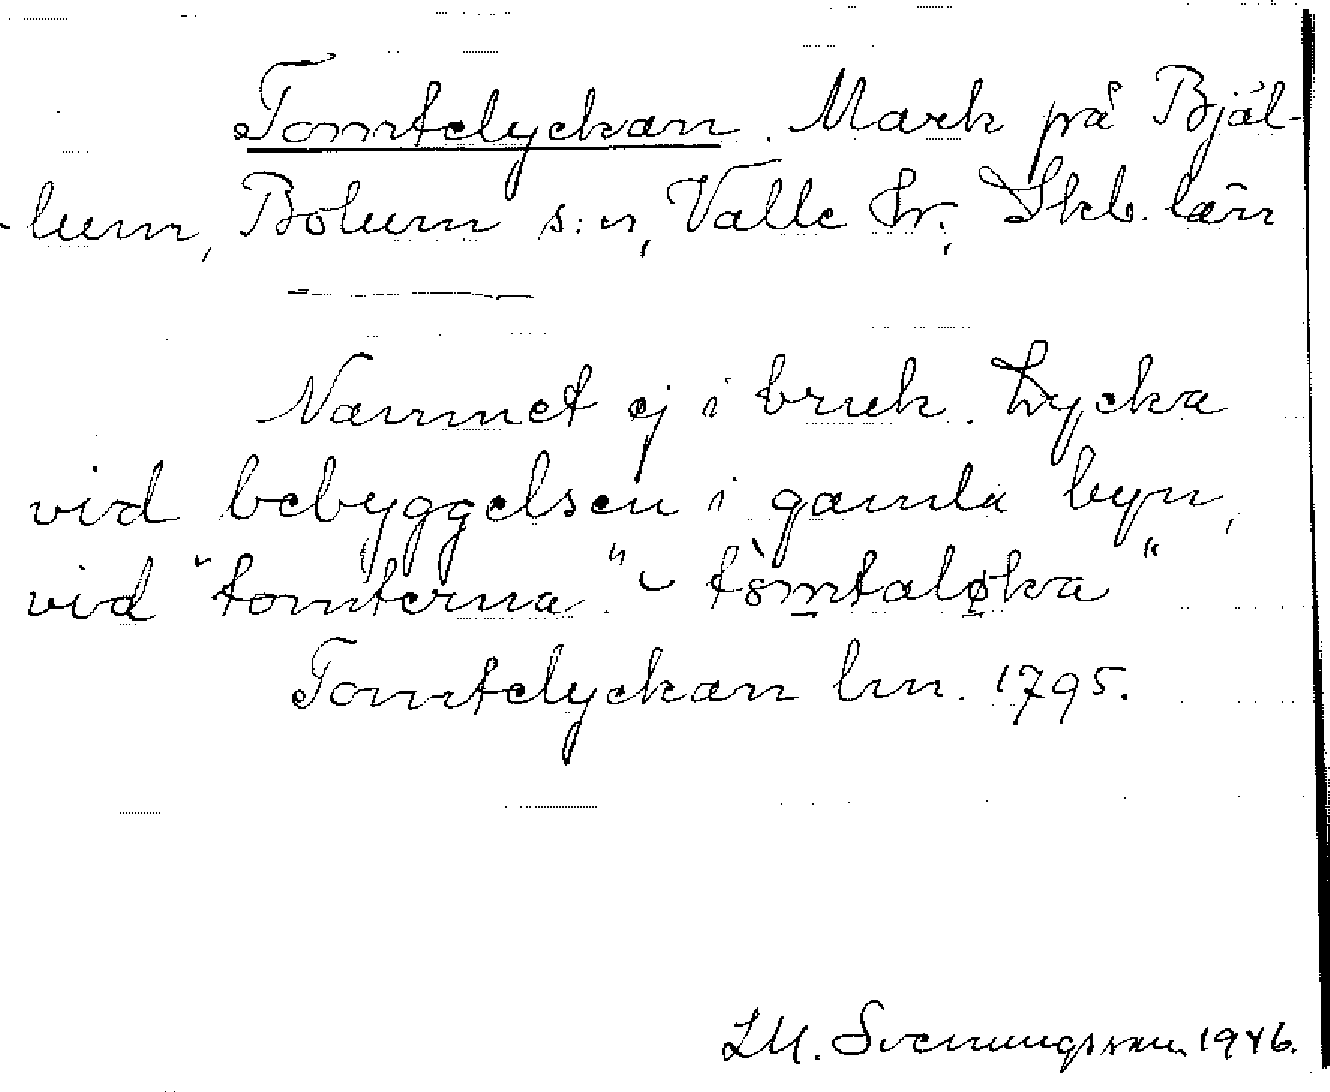 Tomtelyckan. Mark på Bjäl-
-lum, Bolum s:n, Valle hr., Skb. län
Namnet ej i bruk. Lycka
vid bebyggelsen i gamla byn,
vid "tomterna" - tòmtaløka"
Tomtelyckan hm. 1795.
L.M. Svenungsson 1946.